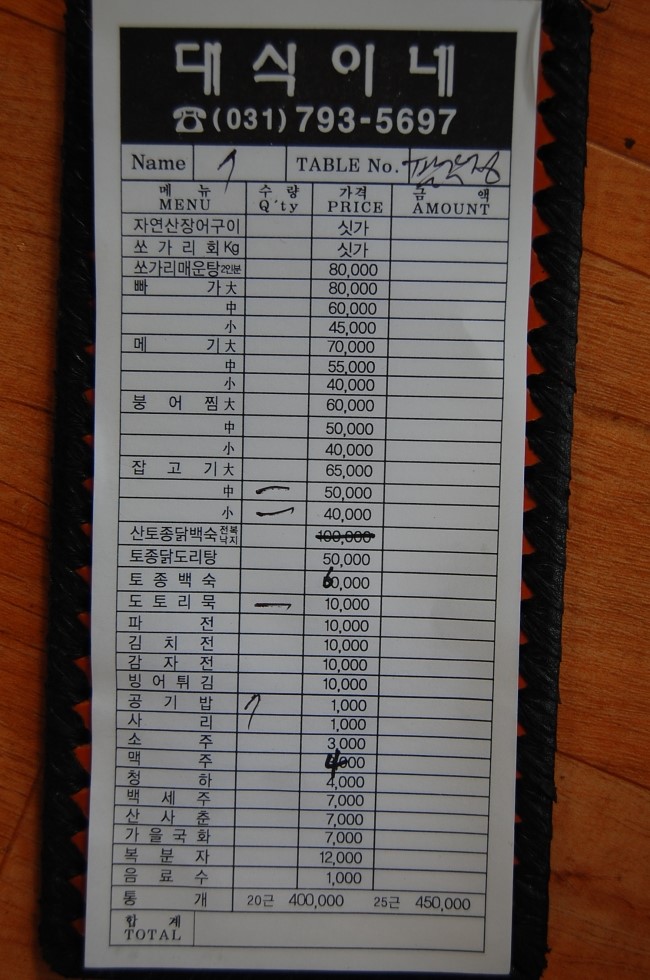 대식이네
☎(031)793-5697
Name 7 TABLE No.
메뉴 수량 가격 금액
MENU Q'ty PRICE AMOUNT
자연산장어구이 싯가
쏘가리회Kg 싯가
쏘가리매운탕2인분 80,000
빠가大 80,000
中 60,000
小 45,000
메기大 70,000
中 55,000
小 40,000
붕어찜大 60,000
中 50,000
小 40,000
잡고기大 65,000
中 一 50,000
小 一 40,000
산토종닭백숙전복낙지 100,000
토종닭도리탕 50,000
토종백숙 60,000
도토리묵 一 10,000
파전 10,000
김치전 10,000
감자전 10,000
빙어튀김 10,000
공기밥 7 1,000
사리 1,000
소주 3,000
맥주 4,000
청하 4,000
백세주 7,000
산사춘 7,000
가을국화 7,000
복분자 12,000
음료수 1,000
통개 20근 400,000 25근 450,000
합계
TOTAL